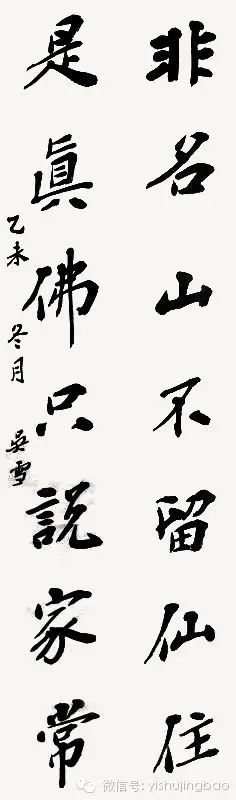 非名山不留仙住
是真佛只說家常
乙未 冬月 吳雪
微信号: yishujingbao